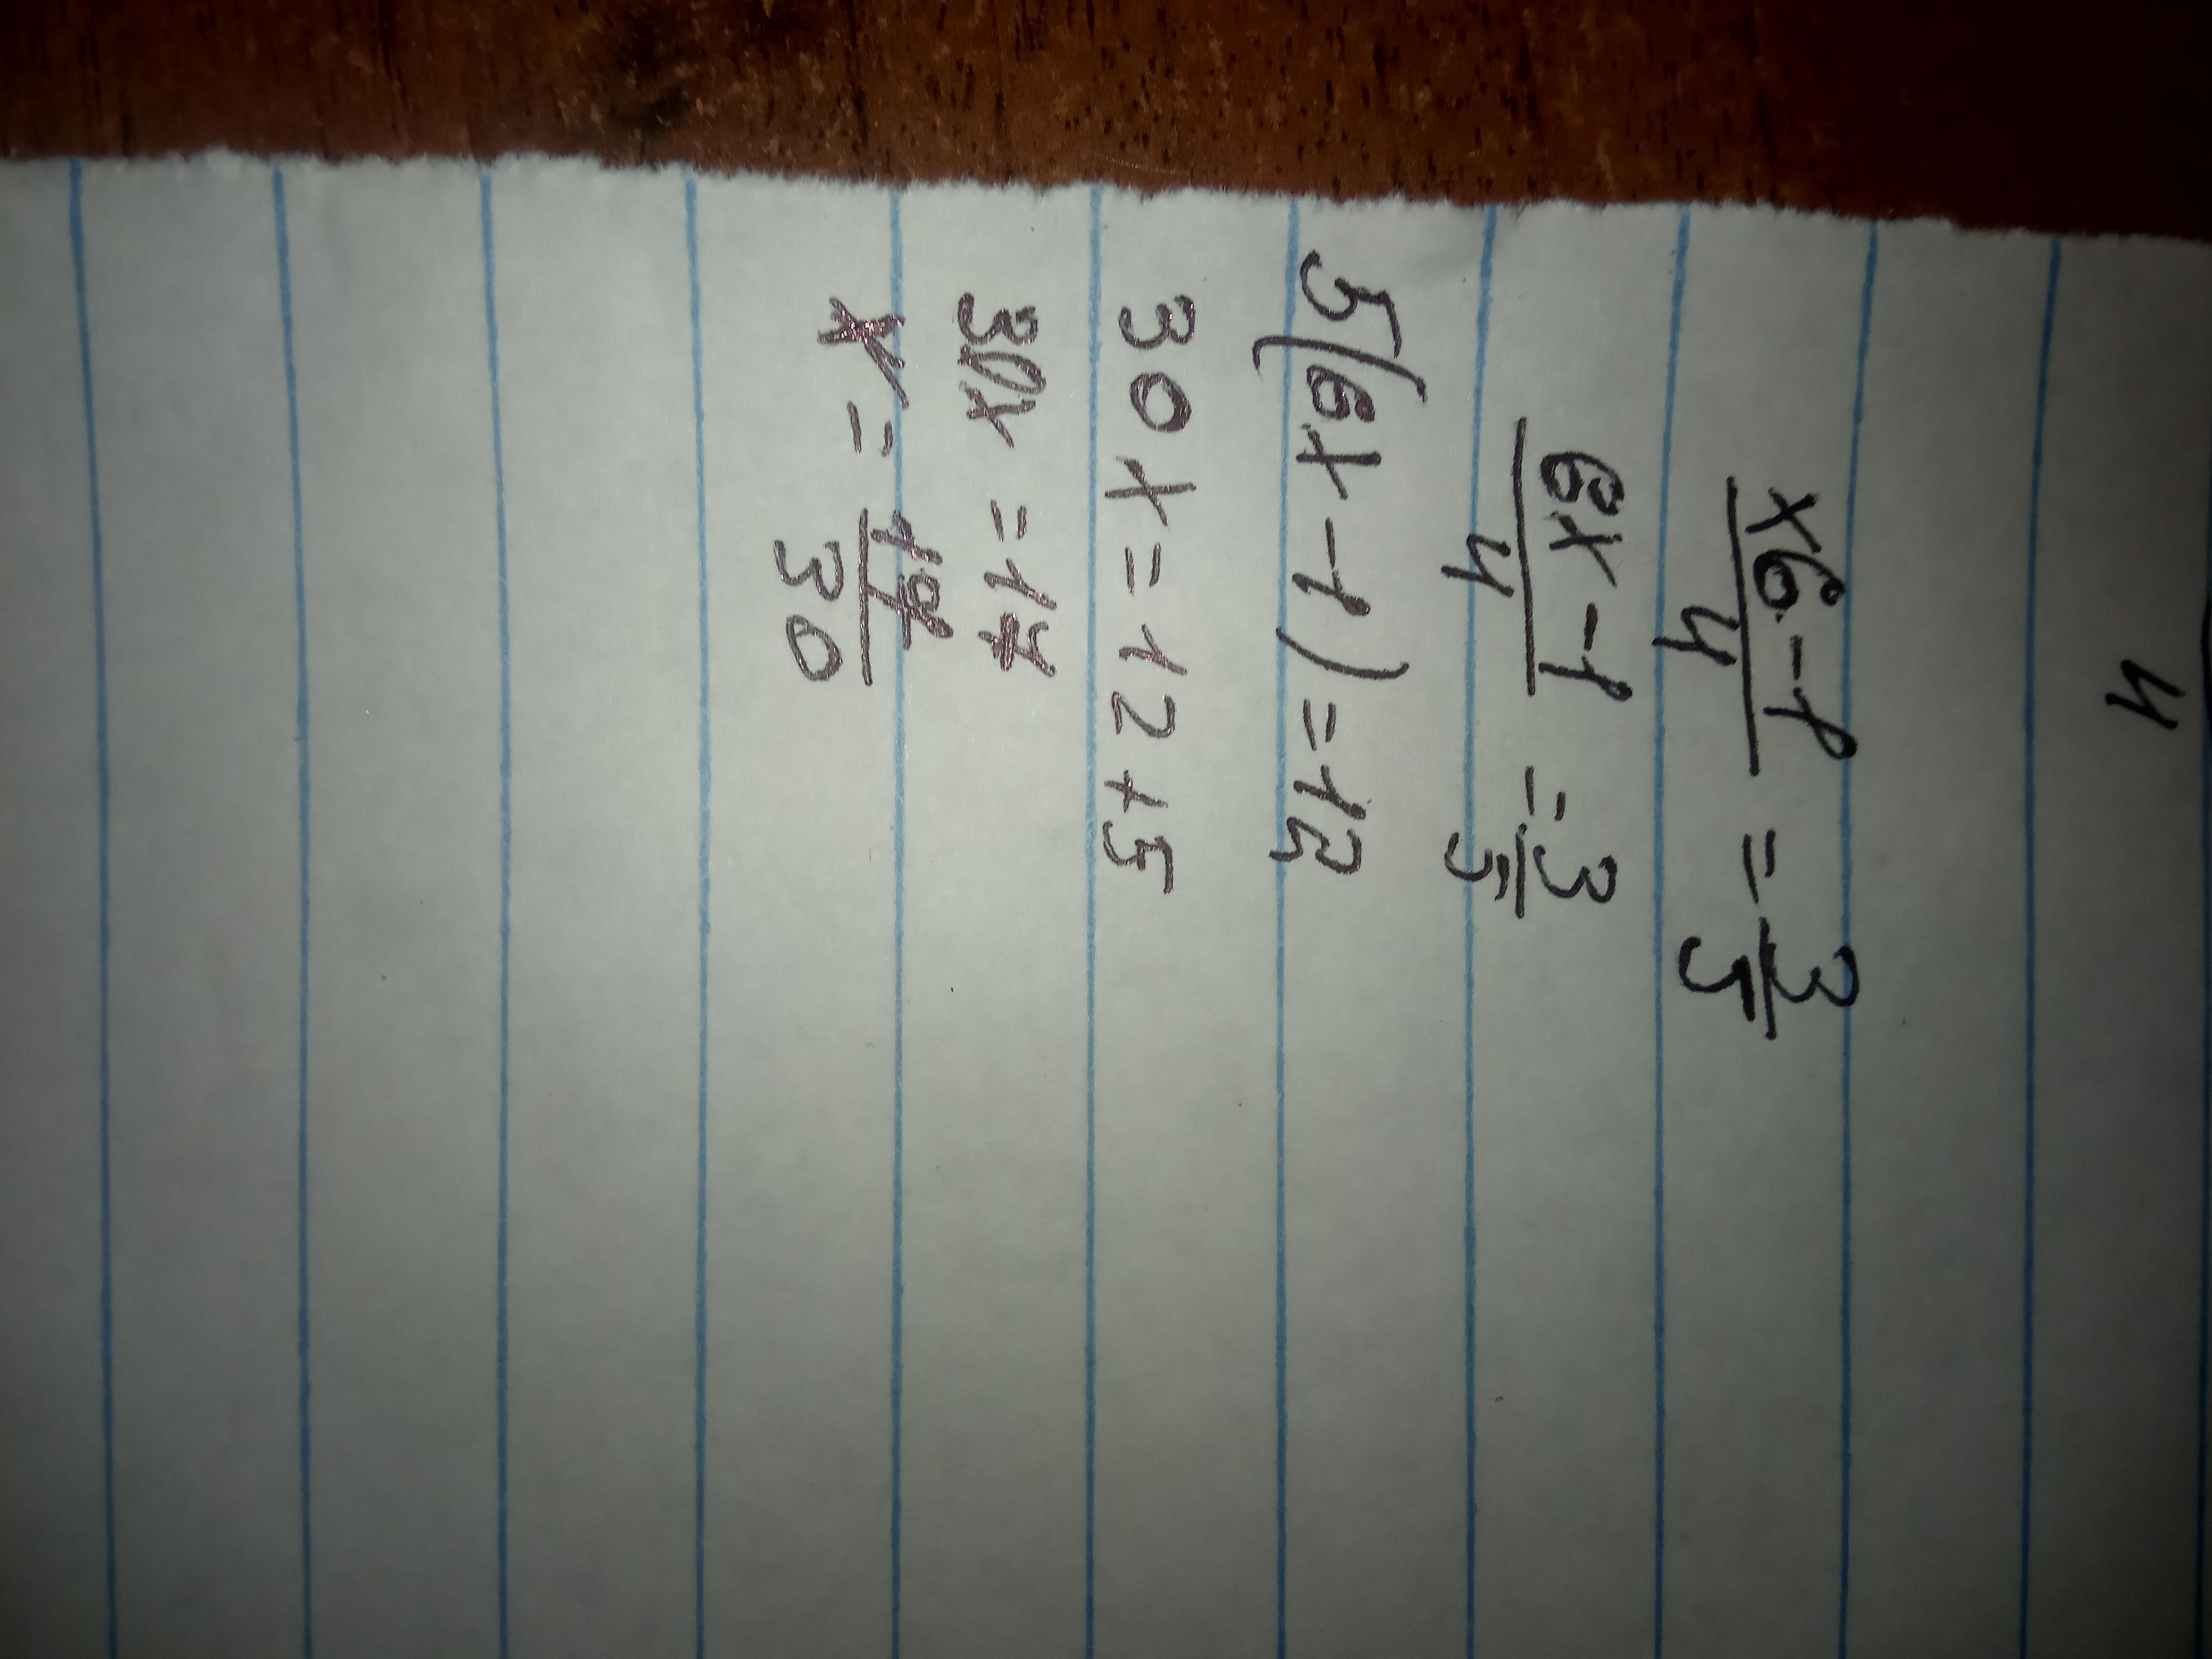 4
x6-1/4 = 3/5
6x-1/4 = 3/5
5(6x-1)=12
30x=12+5
30x=17
x=17/30